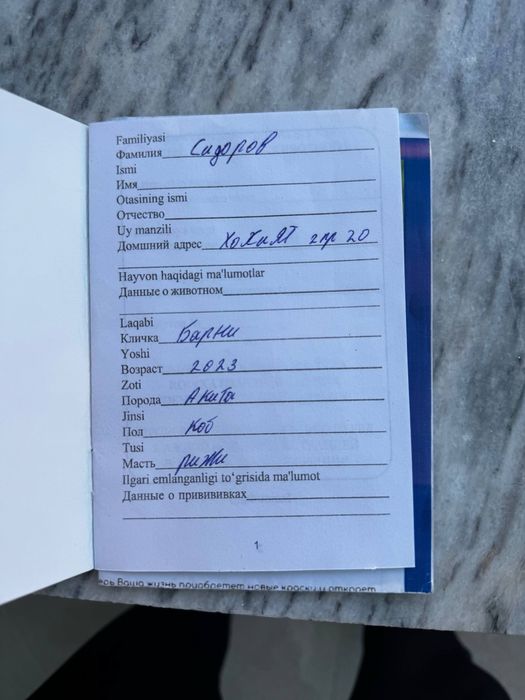 Familiyasi
Фамилия Сидоров
Ismi
Имя
Otasining ismi
Отчество
Uy manzili
Домшний адрес Хокият 2пр 20
Hayvon haqidagi ma'lumotlar
Данные о животном
Laqabi
Кличка Барни
Yoshi
Возраст 2023
Zoti
Порода Акита
Jinsi
Пол Коб
Tusi
Масть рижи
Ilgari emlanganligi to‘grisida ma'lumot
Данные о привививках
1
Ваша жизнь приобретет новые краски и откроет